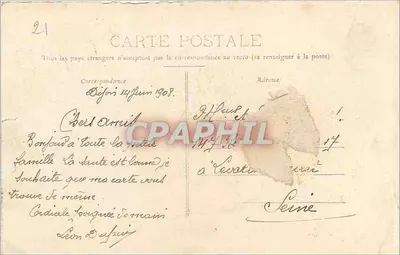 21
CARTE POSTALE
Tous les pays étrangers n'acceptent pas la correspondance au verso (se renseigner à la poste)
Correspondance
Adresse
14 Juin 1908.
Chers Amis
Bonjour à toute la petite
famille La santé est bonne je
souhaite que ma carte vous
trouve de même.
Cordiale Poignée de main
Léon
CPARAMA
à Levallois
Seine